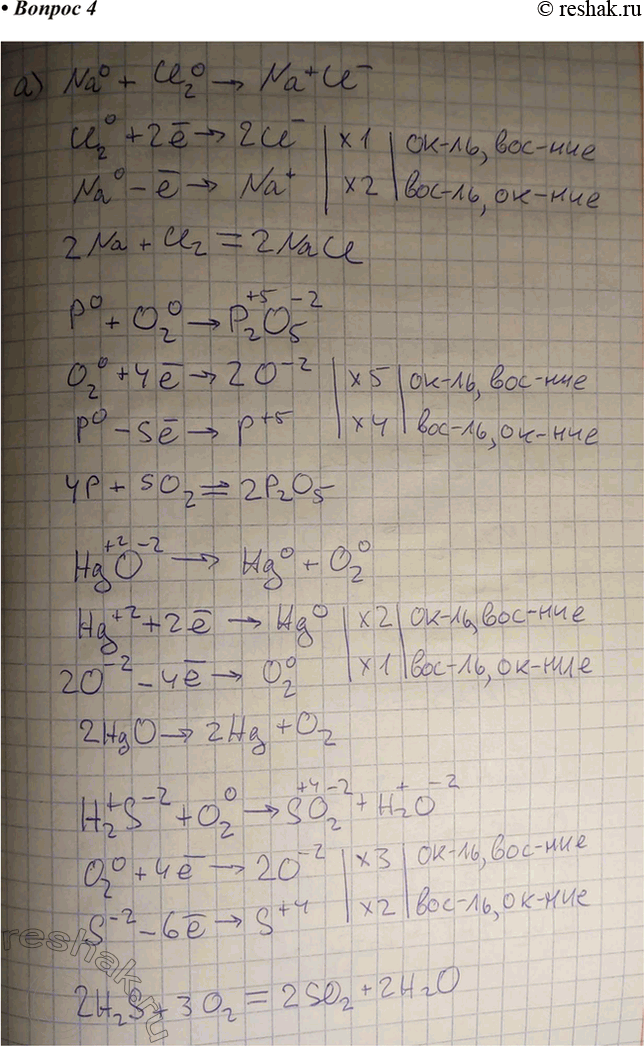 • Вопрос 4
© reshak.ru
а) Na⁰ + Cl₂⁰ → Na⁺Cl⁻
Cl₂⁰ + 2ē → 2Cl⁻ | ×1 | ок-ль, вос-ние
Na⁰ - ē → Na⁺ | ×2 | вос-ль, ок-ние
2Na + Cl₂ = 2NaCl
P⁰ + O₂⁰ → P₂⁺⁵O₅⁻²
O₂⁰ + 4ē → 2O⁻² | ×5 | ок-ль, вос-ние
P⁰ - 5ē → P⁺⁵ | ×4 | вос-ль, ок-ние
4P + 5O₂ = 2P₂O₅
Hg⁺²O⁻² → Hg⁰ + O₂⁰
Hg⁺² + 2ē → Hg⁰ | ×2 | ок-ль, вос-ние
2O⁻² - 4ē → O₂⁰ | ×1 | вос-ль, ок-ние
2HgO → 2Hg + O₂
H₂⁺S⁻² + O₂⁰ → S⁺⁴O₂⁻² + H₂⁺O⁻²
O₂⁰ + 4ē → 2O⁻² | ×3 | ок-ль, вос-ние
S⁻² - 6ē → S⁺⁴ | ×2 | вос-ль, ок-ние
reshak.ru
2H₂S + 3O₂ = 2SO₂ + 2H₂O